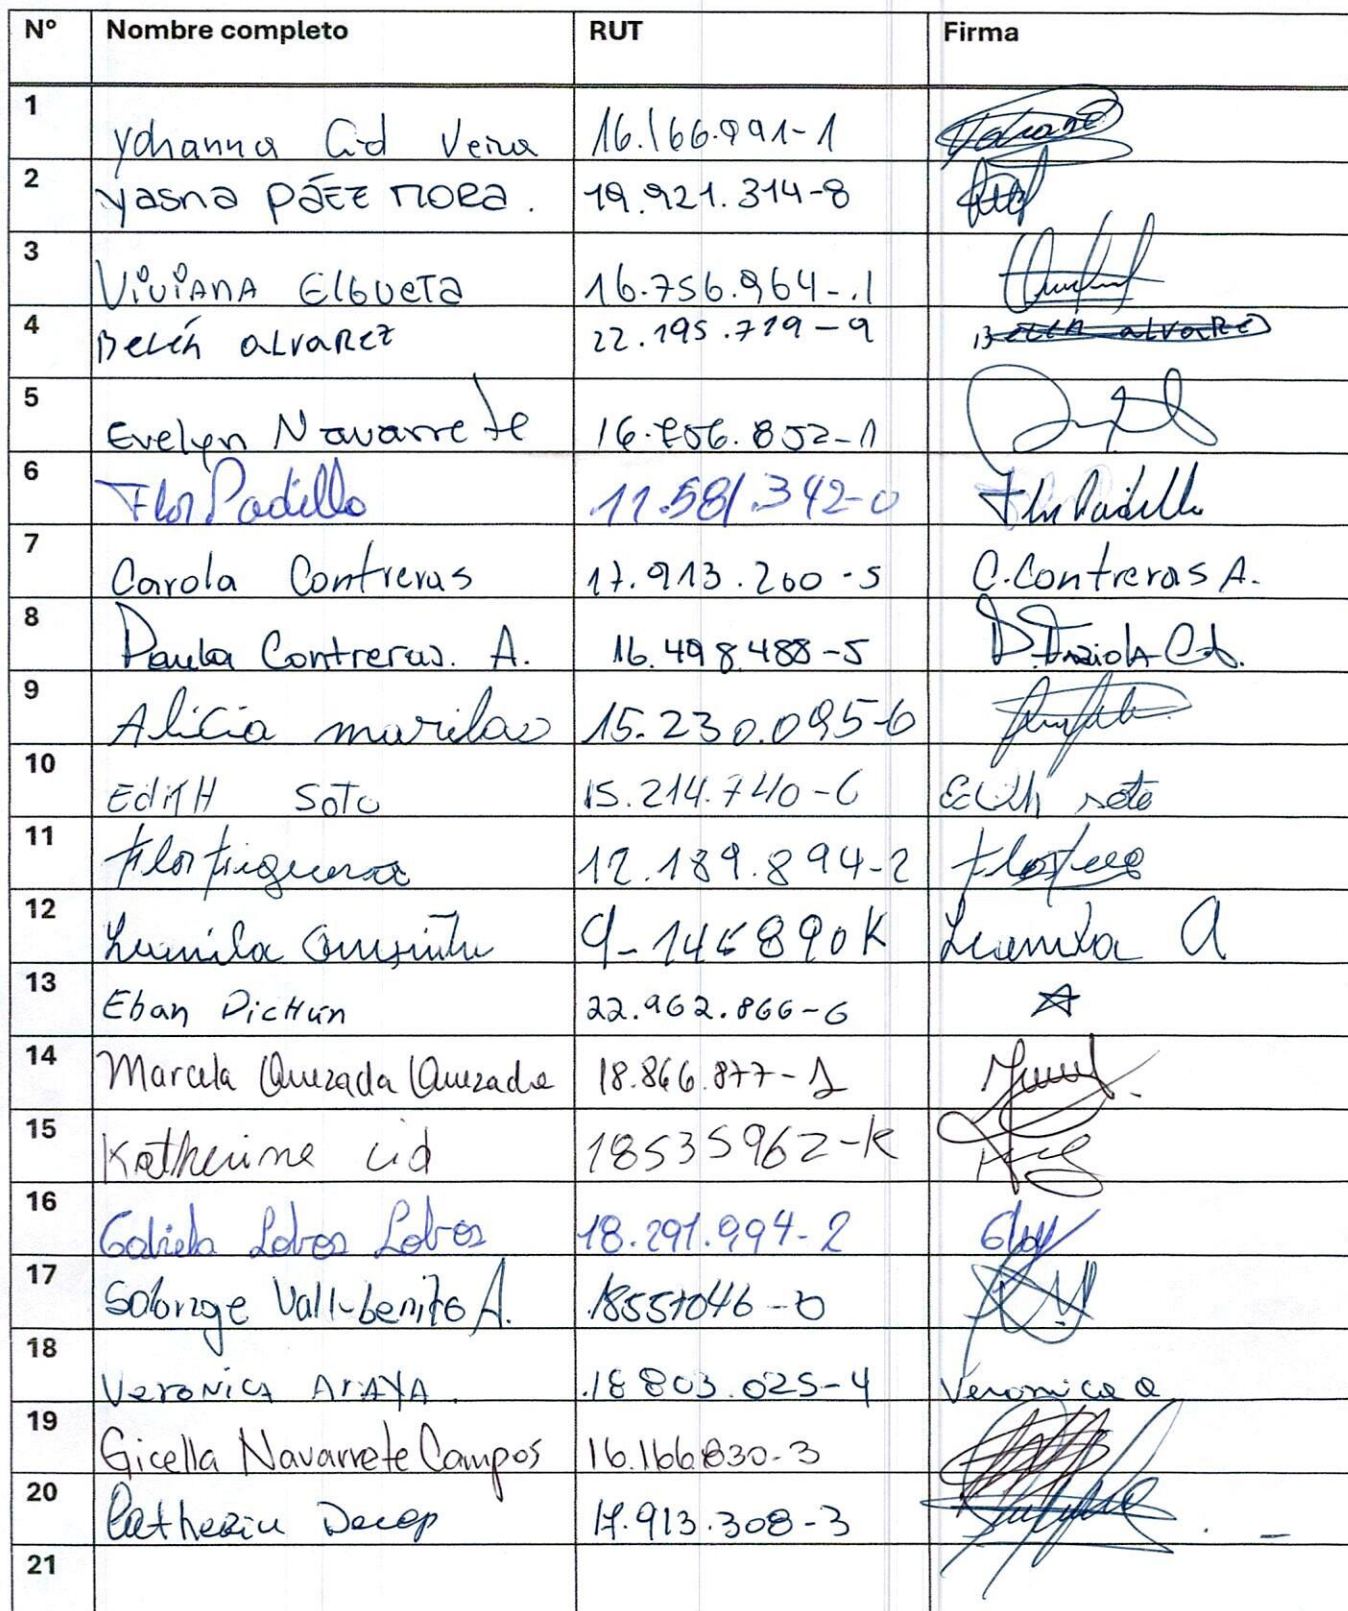 Nº Nombre completo RUT Firma
1 Yohanna Cid Veira 16.166.991-1
2 Yasna PáEz MORA. 19.921.314-8
3 ViViANA ElGUETA 16.756.964-.1
4 Belén alvarez 22.195.719-9 Belén alvarez
5 Evelyn Navarrete 16.756.852-1
6 Flor Padilla 11.581.342-0 Flor Padilla
7 Carola Contreras 17.913.260-5 C. Contreras A.
8 Paula Contreras. A. 16.498.488-5
9 Alicia marilao 15.230.095-6
10 EdiTH SoTo 15.214.740-6 Edith soto
11 Flor Figueroa 12.189.894-2
12 Lumila 9-146890K A
13 Eban PicHun 22.962.866-6
14 Marcela Quezada Quezada 18.866.877-1
15 Katherine Cid 18535962-K
16 Gabriela Lobos Lobos 18.291.994-2
17 Solange Vallebenito A. 18557046-0
18 VERONICA ArAYA. .18 803.025-4 Veronica a
19 Gicella Navarrete Campos 16.166.830-3
20 Catherin 17.913.308-3
21